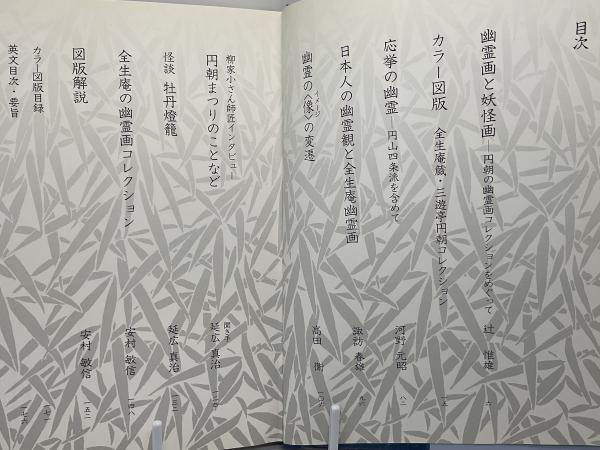 目次
幽霊画と妖怪画―円朝の幽霊画コレクションをめぐって 辻 惟雄 六
カラー図版 全生庵蔵・三遊亭円朝コレクション 一五
応挙の幽霊 円山四条派を含めて 河野 元昭 八二
日本人の幽霊観と全生庵幽霊画 諏訪 春雄
幽霊の〈像〉の変遷 高田 衛
イメージ
柳家小さん師匠インタビュー
円朝まつりのことなど 聞き手 延広 真治
怪談 牡丹燈籠 延広 真治 一三二
全生庵の幽霊画コレクション 安村 敏信 一四八
図版解説 安村 敏信 一五二
カラー図版目録 一七一
英文目次・要旨 一七六